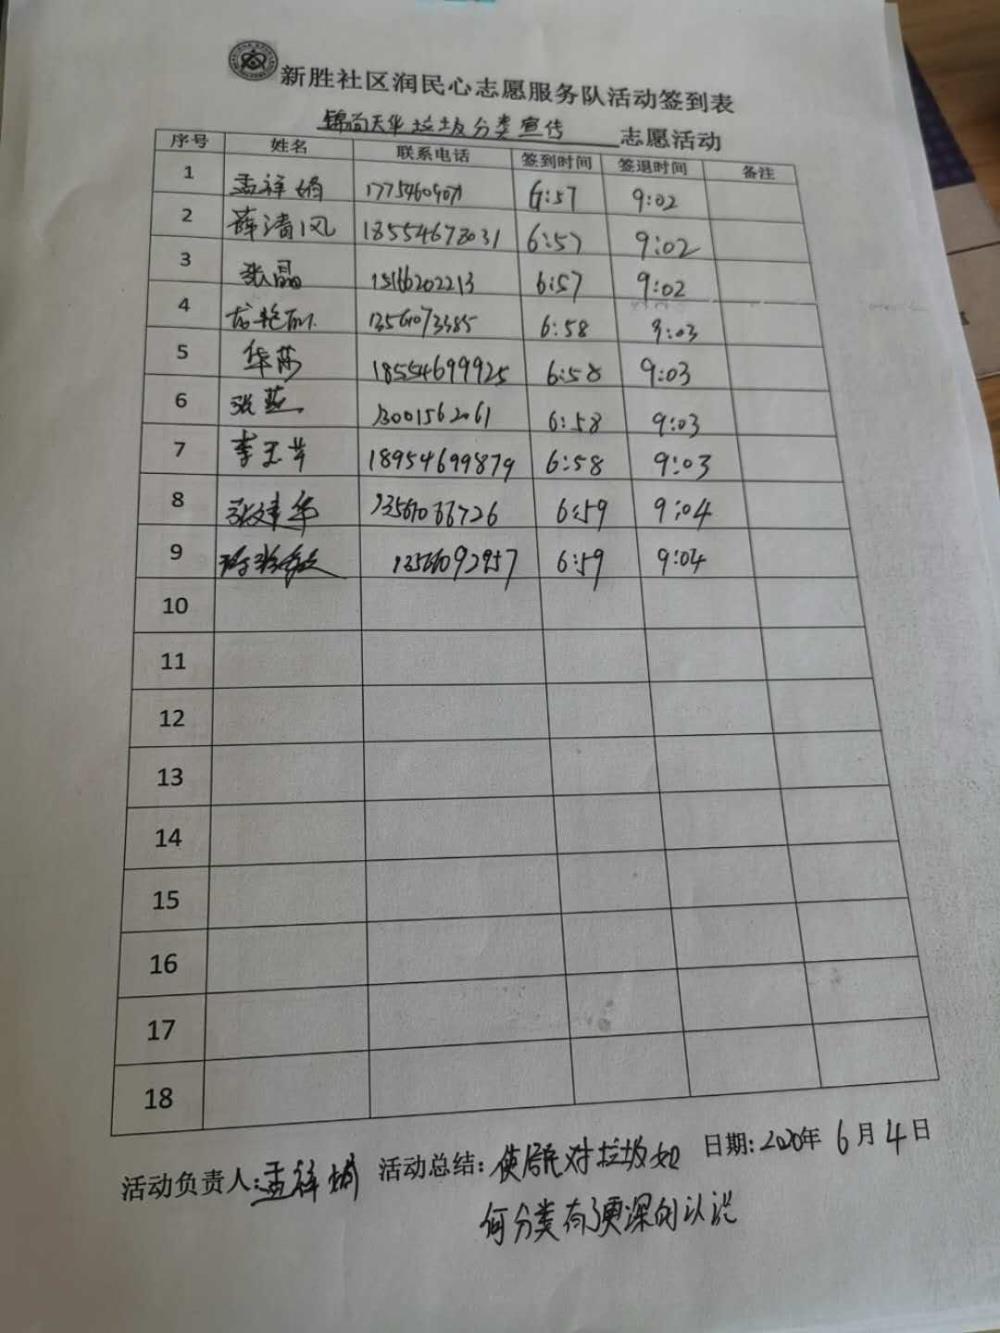 新胜社区润民心志愿服务队活动签到表
锦尚天华垃圾分类宣传 志愿活动
序号 姓名 联系电话 签到时间 签退时间 备注
1 孟祥娟 6:57 9:02
2 薛清风 6:57 9:02
3 张晶 15166202213 6:57 9:02
4 13561073385 6:58 9:03
5 华莎 18554699925 6:58 9:03
6 张燕 13001562061 6:58 9:03
7 李玉芹 18954699879 6:58 9:03
8 张建华 6:59 9:04
9 6:59 9:04
10
11
12
13
14
15
16
17
18
活动负责人:孟祥娟 活动总结: 使居民对垃圾如 日期:2020年 6月4日
何分类有了更深的认识